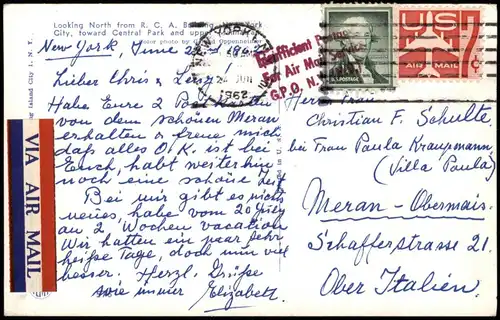 Looking North from R. C. A. Building, New York
City, toward Central Park and upper
Color photo by Gerard Oppenheimer
New York, June 22,
Lieber Chris & Lenzi!
Habe Eure 2 Postkarten
von dem schönen Meran
erhalten & freue mich
daß alles O.K. ist bei
Euch, habt weiterhin
noch eine schöne Zeit
Bei uns gibt es nichts
neues, habe vom 20 July
an 2 Wochen vacation
Wir hatten ein paar sehr
heiße Tage, doch nun viel
besser. Herzl. Grüße
wie immer Elizabeth
VIA AIR MAIL
NEW YORK
24 JUN
1962
Insufficient Postage
For Air Mail Service
G.P.O. N.Y.
U.S. POSTAGE
US
AIR MAIL
7¢
Herrn Frau
Christian F. Schulte
bei Frau Paula Kraupmann
(Villa Paula)
Meran - Obermais.
Schafferstrasse 21.
Ober Italien.